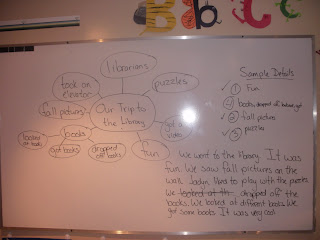 librarians
took on
elevator
puzzles
Sample Details
fall pictures
Our Trip to
the Library
got a
video
1 fun
4 books, dropped off
2 fall picture
3 puzzles
looked
at books
books
got books
dropped
off books
fun
We went to the library. It was
fun. We saw fall pictures on the
wall. liked to play with the puzzles.
We looked at th dropped off the
books. We looked at different books. We
got some books. It was very cool